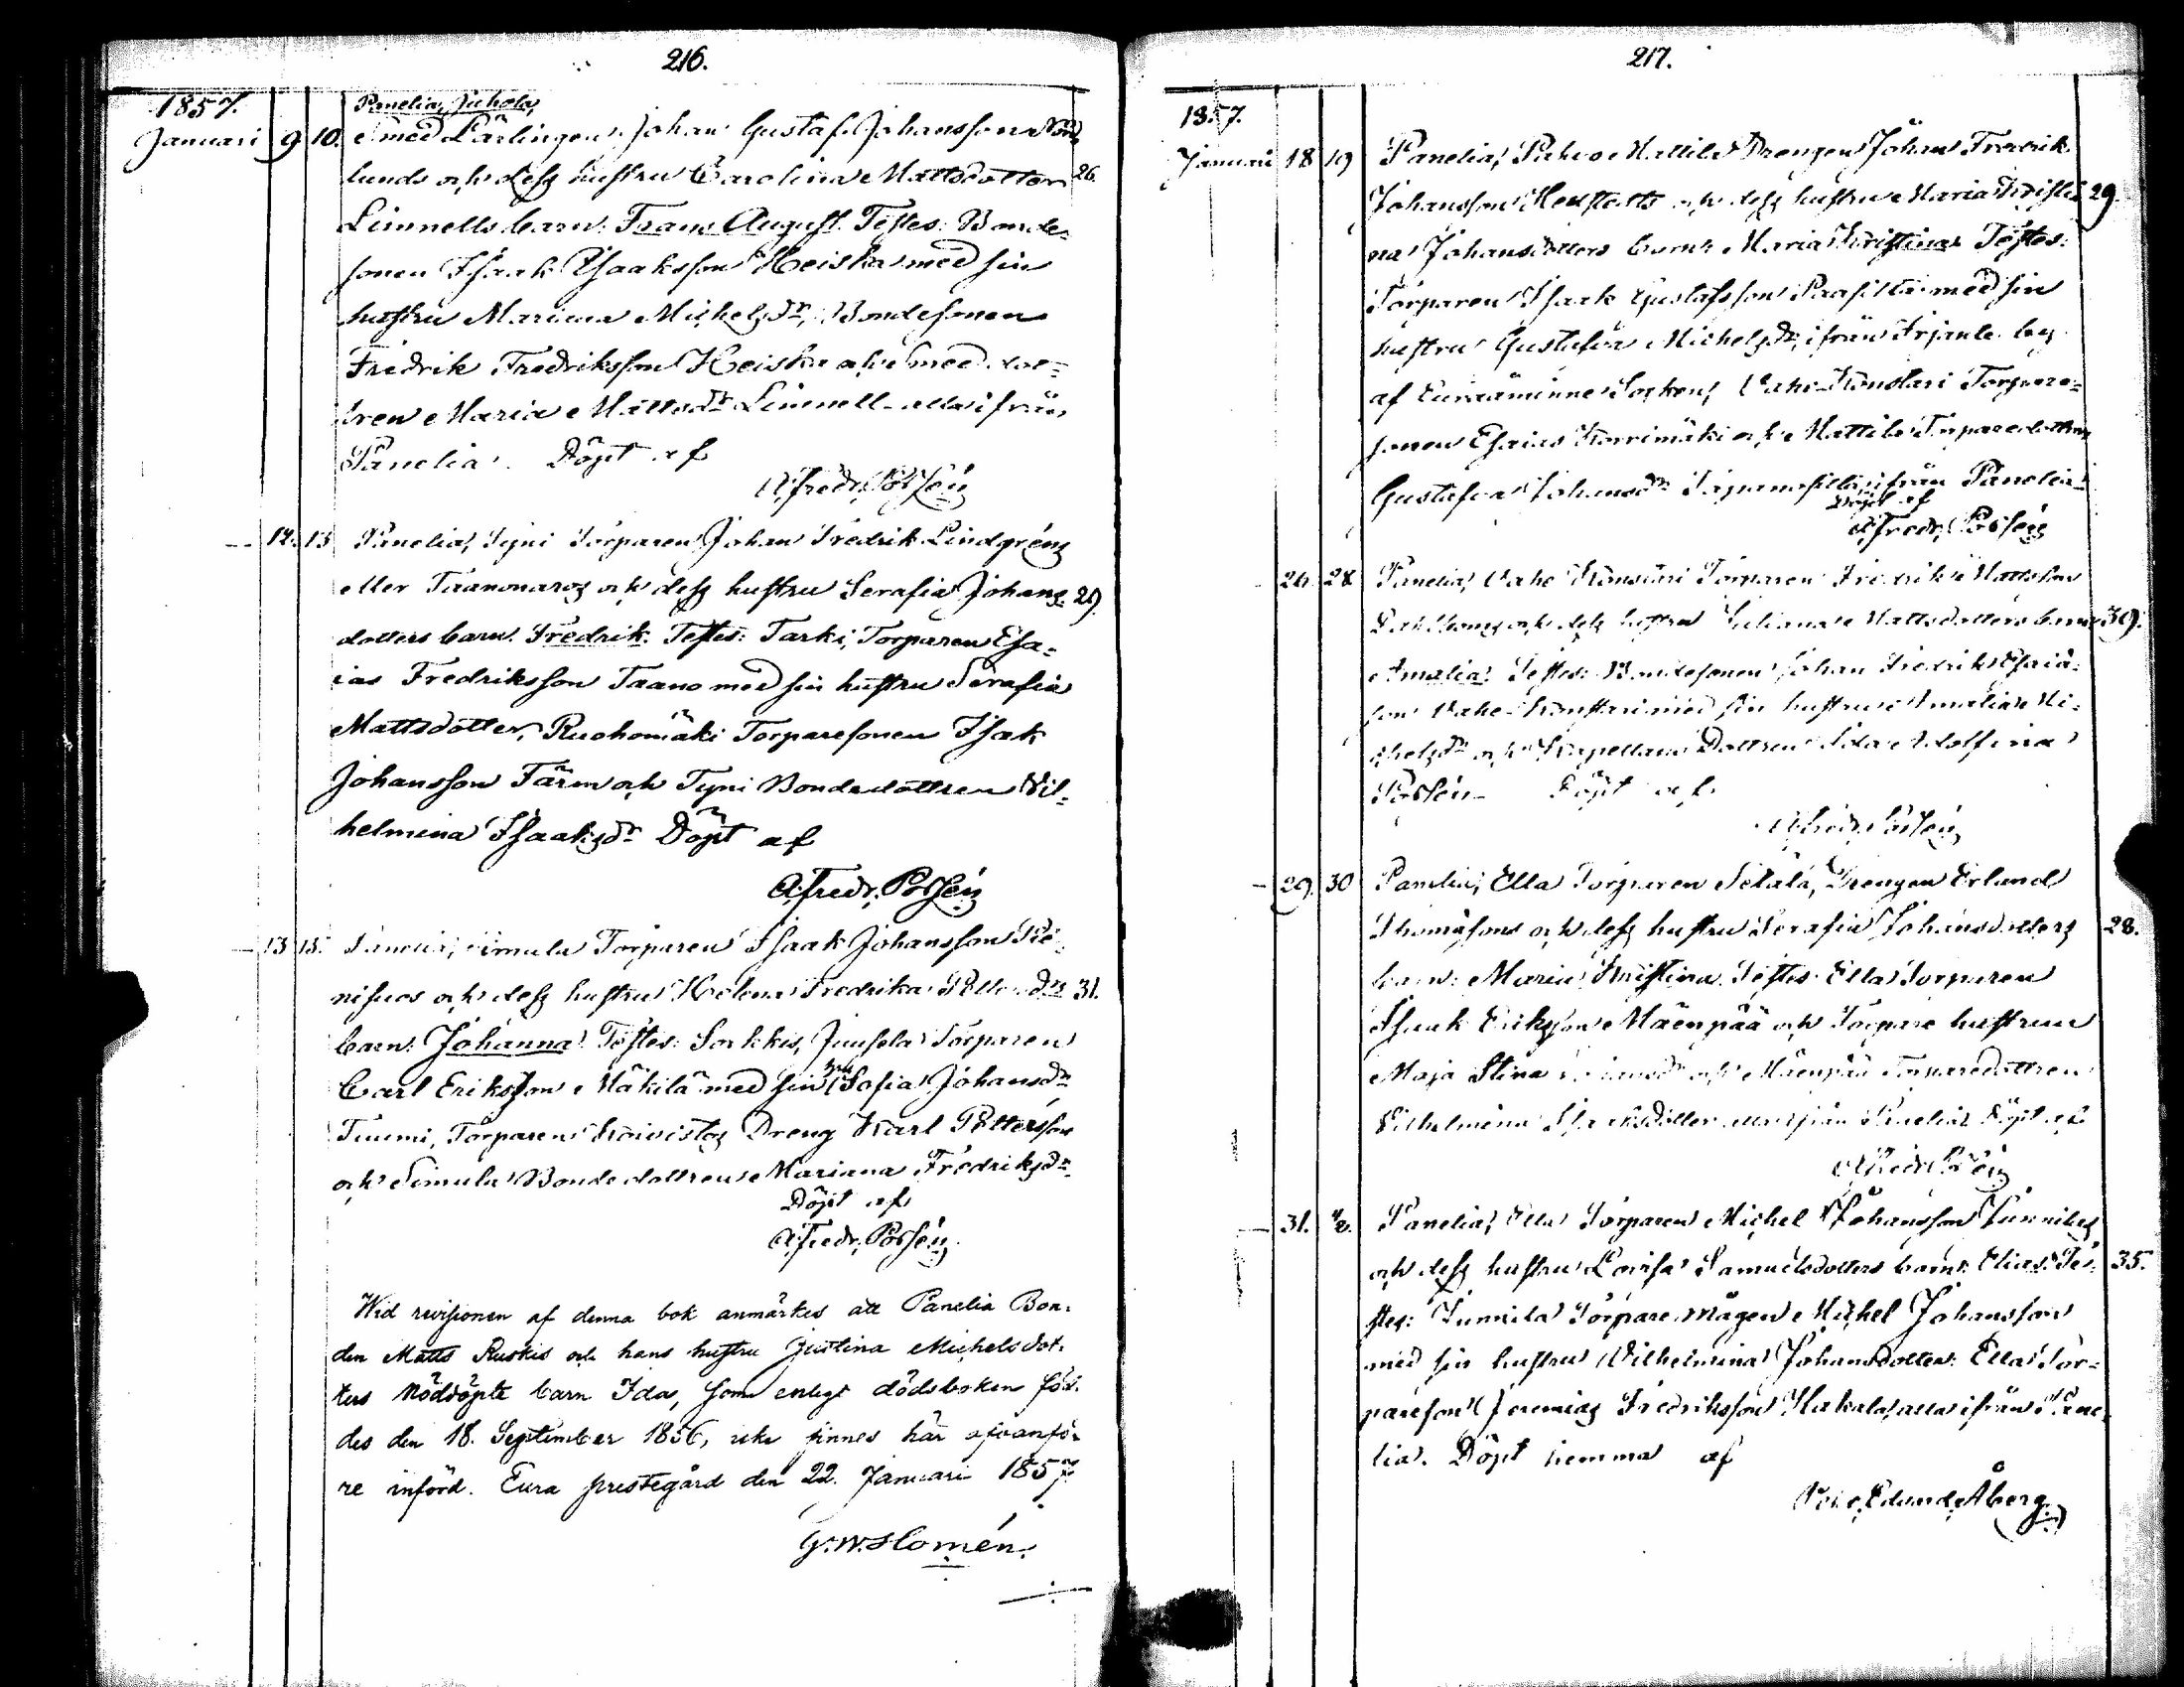 216.
1857.
Panelia, Juhola,
Januari 9 10. Smed Lärlingen Johan Gustaf Johansson Nord-
lunds och dess hustru Carolina Mattsdotter 26.
Linnells barn: Frans August. Testes: Bonde-
sonen Isaak Isaaksson Heiska med sin
hustru Mariana Michelsdr, Bondesonen
Fredrik Fredriksson Heiska och Smeddot-
tren Maria Mattsdr Linnell alla ifrån
Panelia. Döpt af
A. Fredr. Possén
12. 13 Panelia, Tyni Torparen Johan Fredrik Lindgréns
eller Taanonaros och dess hustru Serafia Johans- 29.
dotters barn: Fredrik. Testes: Tarki, Torparen Esa-
ias Fredriksson Taano med sin hustru Serafia
Mattsdotter, Ruohomäki Torparesonen Isak
Johansson Färm och Tyni Bondedottren Vil-
helmina Isaaksdr Döpt af
A. Fredr. Possén
13 15. Panelia, Simula Torparen Isaak Johansson
nisuos och dess hustru Helena Fredrika 31.
barn: Johanna. Testes: Sorkkis, Juusela Torparen
Carl Eriksson Mäkilä med sin hru Sofia Johansdr
Tuumi, Torparen Koivistos Dreng Karl Pettersson
och Simula Bondedottren Mariana Fredriksdr
Döpt af
A. Fredr. Possén
Wid revisionen af denna bok anmärkes att Panelia Bon-
den Matts Ruskis och hans hustru Justina Michelsdot-
ters Nöddöpte barn Ida, som enligt dödsboken föd-
des den 18. September 1856, icke finnes här ofvanfö-
re införd. Eura prestegård den 22. Januari 1857
G. W. Homén.
217.
1857.
Januari 18 19 Panelia, Mattila Drengen Johan Fredrik
Johansson och dess hustru Maria Kristi- 29.
na Johansdotters barn: Maria Kristina Testes:
Torparen Isaak Gustafsson Paasilta med sin
hustru Gustafva Michelsdr, ifrån Irjante by
af Euraåminne Socken, Vahe-Konstari Torpare-
sonen Esaias Korrimäki och Mattila Torparedottren
Gustafva Johansdr ifrån Panelia
Döpt af
A. Fredr. Possén
26. 28 Panelia, Vahe Konstari Torparen Fredrik Mattsson
och dess hustru Juliana Mattsdotters barn 39.
Amalia. Testes: Bondesonen Johan Fredrik Esaia-
son Vahe-Konstari med sin hustru Amalia Mi-
chelsdr och Kapellans Dottren Ida Adolfina
Possén. Döpt af
A. Fredr. Possén
29. 30 Panelia, Ella Torparen Setälä, Drengen Erland
Thomassons och dess hustru Serafia Johansdotters 28.
barn: Maria Kristina. Testes: Ella Torparen
Isaak Eriksson Mäenpää och Torpare hustrun
Maja Stina och Mäenpää Torparedottren
Vilhelmina Isaaksdotter alla ifrån Panelia. Döpt af
A. Fredr. Possén
31. 1/2. Panelia, Ella Torparen Michel Johansson Junnilas
och dess hustru Lovisa Samuelsdotters barn: Elias. Te- 35.
stes: Junnila Torpare mågen Michel Johansson
med sin hustru Vilhelmina Johansdotter. Ella Tor-
pareson Jeremias Fredriksson Hakala, alla ifrån Pane-
lia. Döpt hemma af
Edvard Åberg